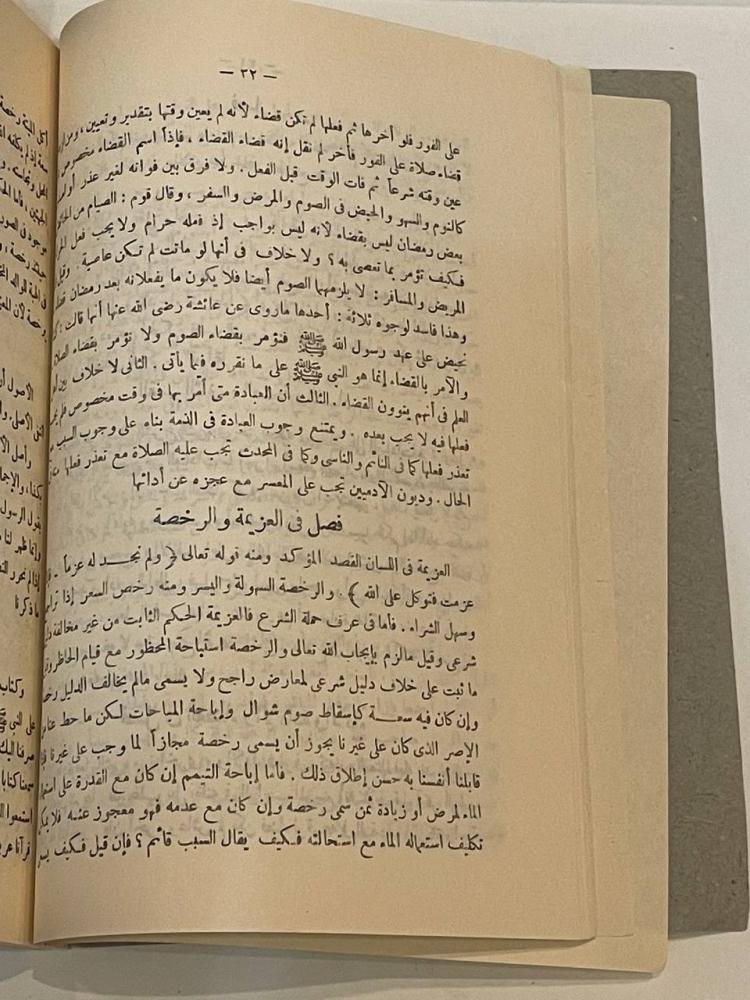 — ٣٢ —
على الفور فلو أخرها ثم فعلها لم تكن قضاء لأنه لم يعين وقتها بتقدير وتعيين ، ومن لزمه
قضاء صلاة على الفور فأخر لم نقل إنه قضاء القضاء ، فإذاً اسم القضاء مخصوص
عين وقته شرعاً ثم فات الوقت قبل الفعل . ولا فرق بين فواته لغير عذر أو لعذر
كالنوم والسهو والحيض فى الصوم والمرض والسفر ، وقال قوم : الصيام من الحائض
بعض رمضان ليس بقضاء لأنه ليس بواجب إذ فعله حرام ولا يجب فعل الحرام
فكيف تؤمر بما تعصى به ؟ ولا خلاف فى أنها لو ماتت لم تكن عاصية . وقيل
المريض والمسافر : لا يلزمهما الصوم أيضا فلا يكون ما يفعلانه بعد رمضان قضاء
وهذا فاسد لوجوه ثلاثة : أحدها ماروى عن عائشة رضى الله عنها أنها قالت :
نحيض على عهد رسول الله ﷺ فنؤمر بقضاء الصوم ولا نؤمر بقضاء الصلاة
والآمر بالقضاء إنما هو النبى ﷺ على ما نقرره فيما يأتى . الثانى لا خلاف بين أهل
العلم فى أنهم ينوون القضاء . الثالث أن العبادة متى أمر بها فى وقت مخصوص فلم يجب
فعلها فيه لا يجب بعده . ويمتنع وجوب العبادة فى الذمة بناء على وجوب السبب مع
تعذر فعلها كما فى النائم والناسى وكما فى المحدث تجب عليه الصلاة مع تعذر فعلها منه فى
الحال . وديون الآدميين تجب على المعسر مع عجزه عن أدائها
فصل فى العزيمة والرخصة
العزيمة فى اللسان القصد المؤكد ومنه قوله تعالى ﴿ ولم نجد له عزماً ـ
عزمت فتوكل على الله ﴾ . والرخصة السهولة واليسر ومنه رخص السعر إذا تراجع
وسهل الشراء . فأما فى عرف حملة الشرع فالعزيمة الحكم الثابت من غير مخالفة دليل
شرعى وقيل مالزم بإيجاب الله تعالى والرخصة استباحة المحظور مع قيام الحاظر وقيل
ما ثبت على خلاف دليل شرعى لمعارض راجح ولا يسمى مالم يخالف الدليل رخصة
وإن كان فيه سعة كإسقاط صوم شوال وإباحة المباحات لكن ما حط عنا من
الإصر الذى كان على غيرنا يجوز أن يسمى رخصة مجازاً لما وجب على غيرنا فإذا
قابلنا أنفسنا به حسن إطلاق ذلك . فأما إباحة التيمم إن كان مع القدرة على استعمال
الماء لمرض أو زيادة ثمن سمى رخصة وإن كان مع عدمه فهو معجوز عنه فلا يمكن
تكليف استعماله الماء مع استحالته فكيف يقال السبب قائم ؟ فإن قيل فكيف يسمى